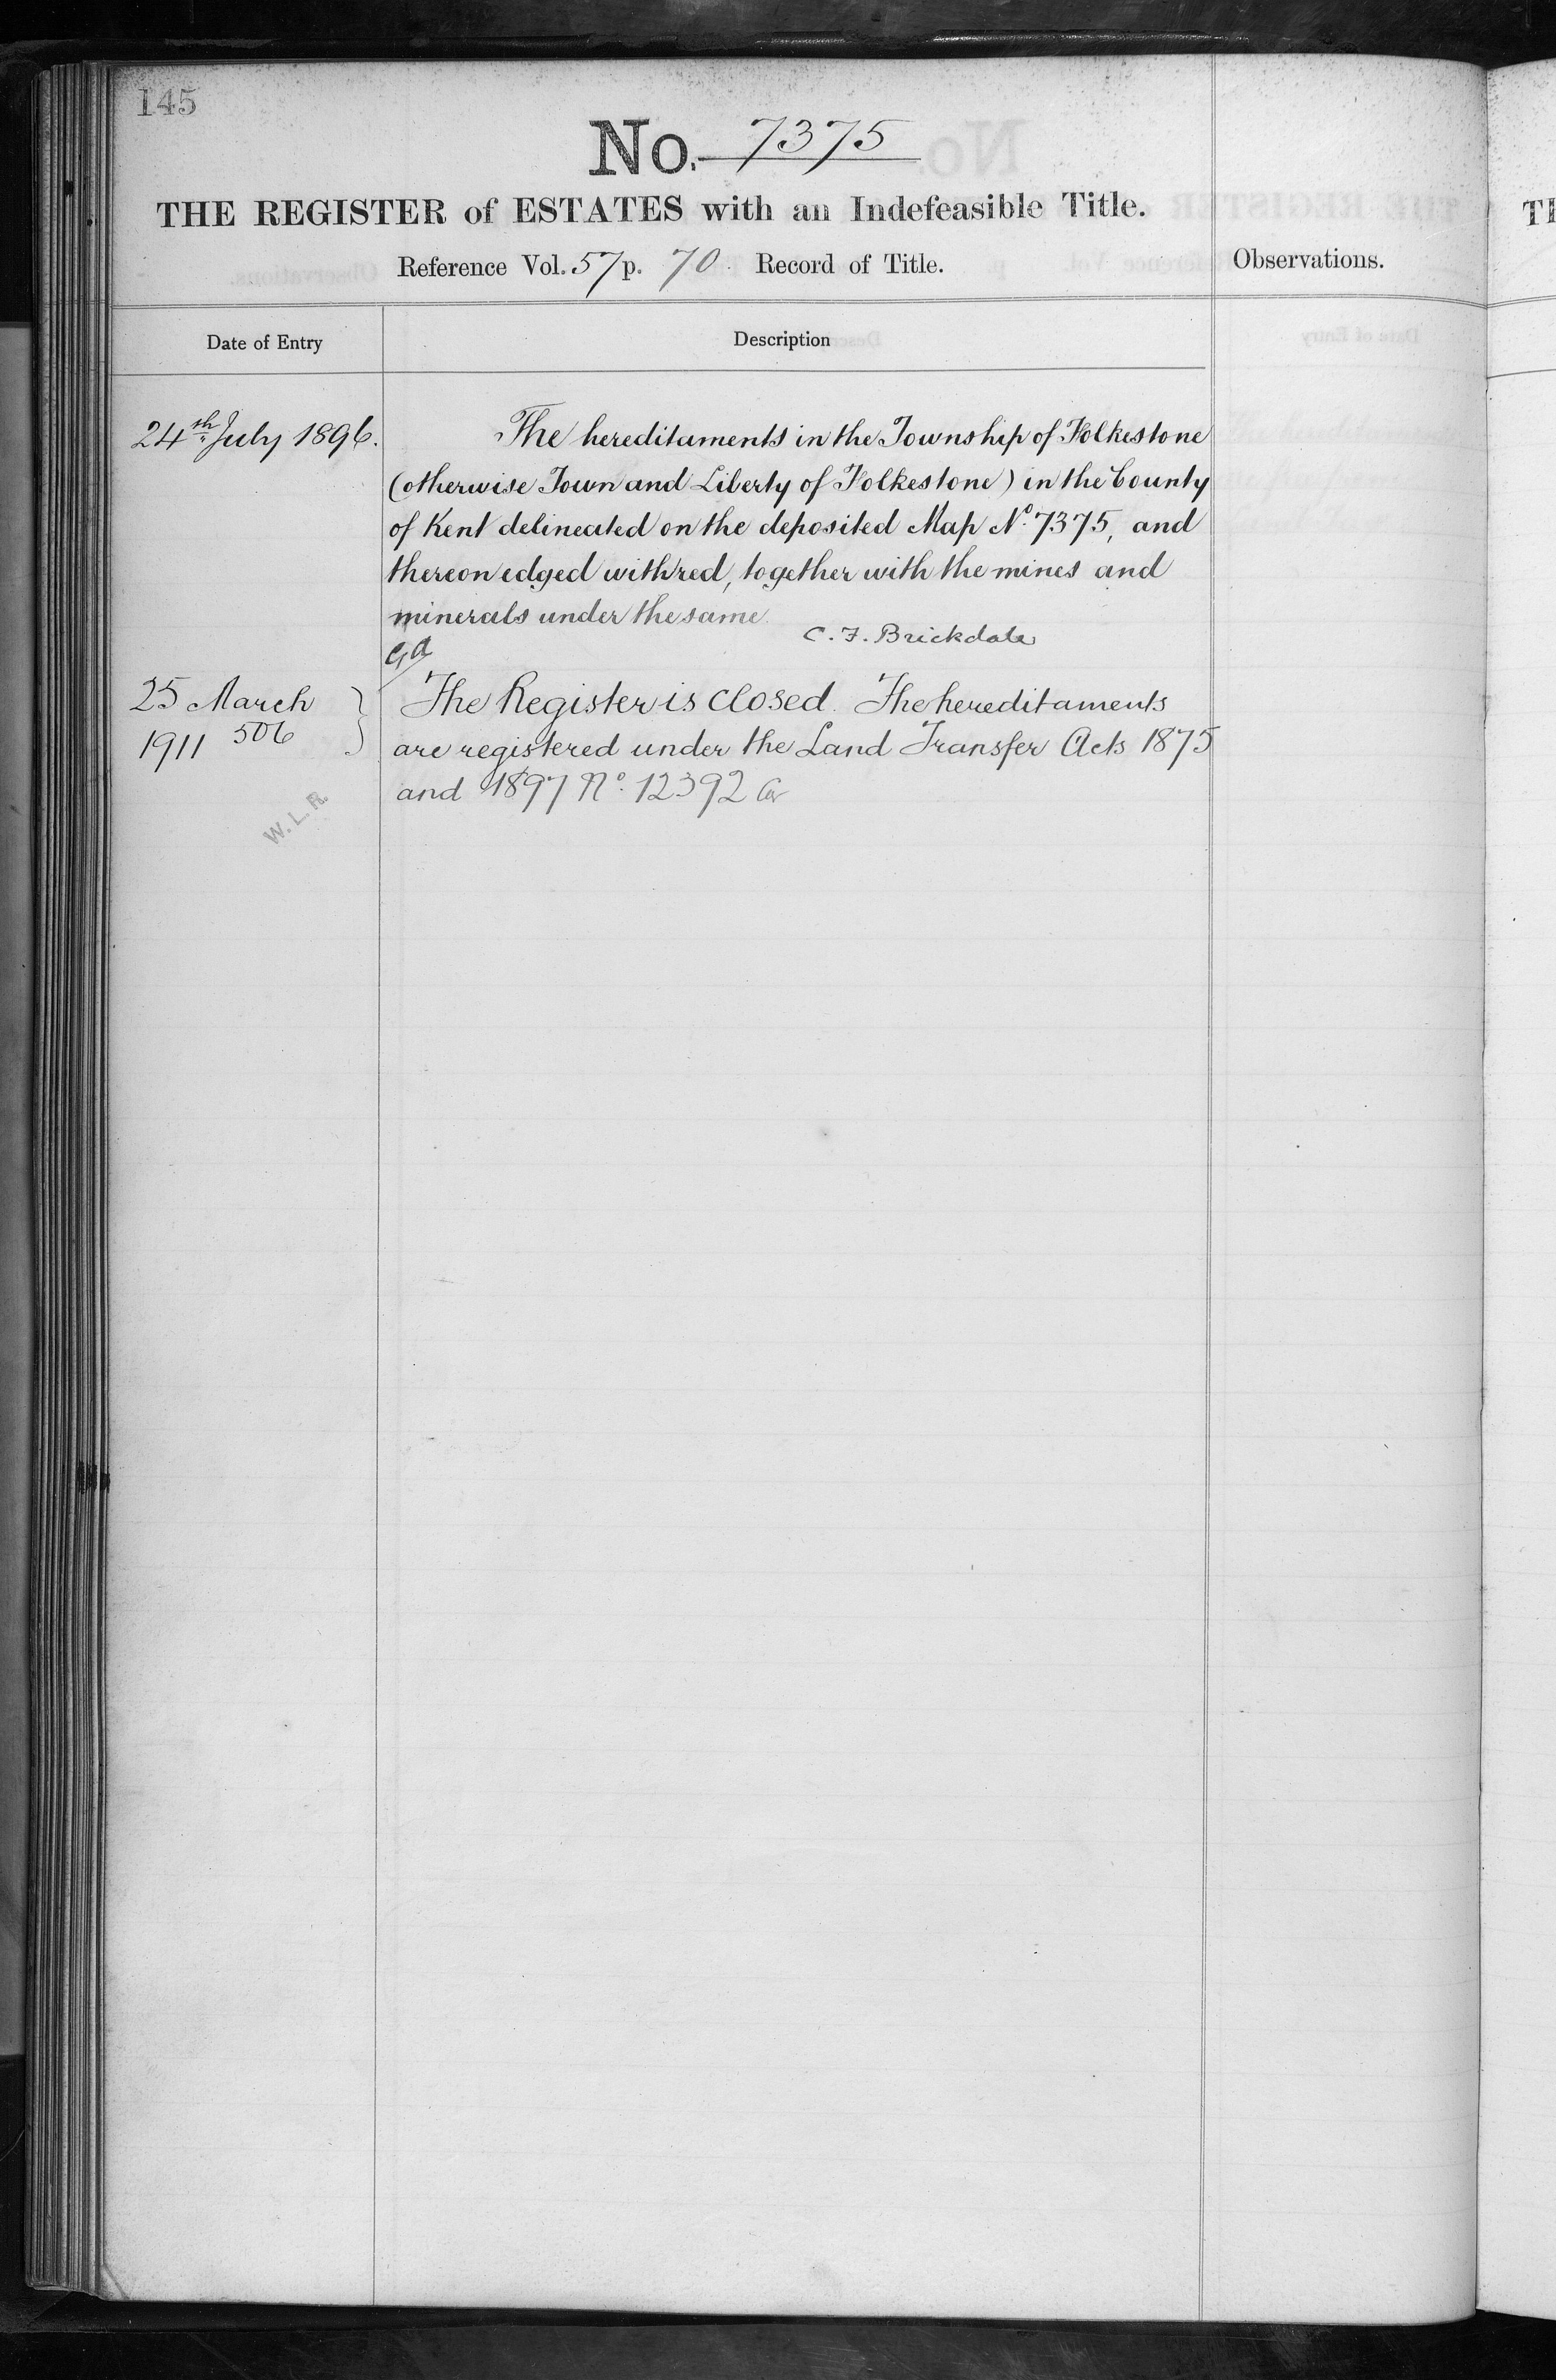 145
No. 7375
THE REGISTER of ESTATES with an Indefeasible Title.
Reference Vol. 57 p. 70 Record of Title.
Observations.
Date of Entry
Description
24th July 1896.
The hereditaments in the Township of Folkestone
(otherwise Town and Liberty of Folkestone) in the County
of Kent delineated on the deposited Map No. 7375, and
thereon edged with red, together with the mines and
minerals under the same.
C. F. Brickdale
25 March
1911 506
The Register is closed. The hereditaments
are registered under the Land Transfer Acts 1875
and 1897 No. 12392
W.L.R.